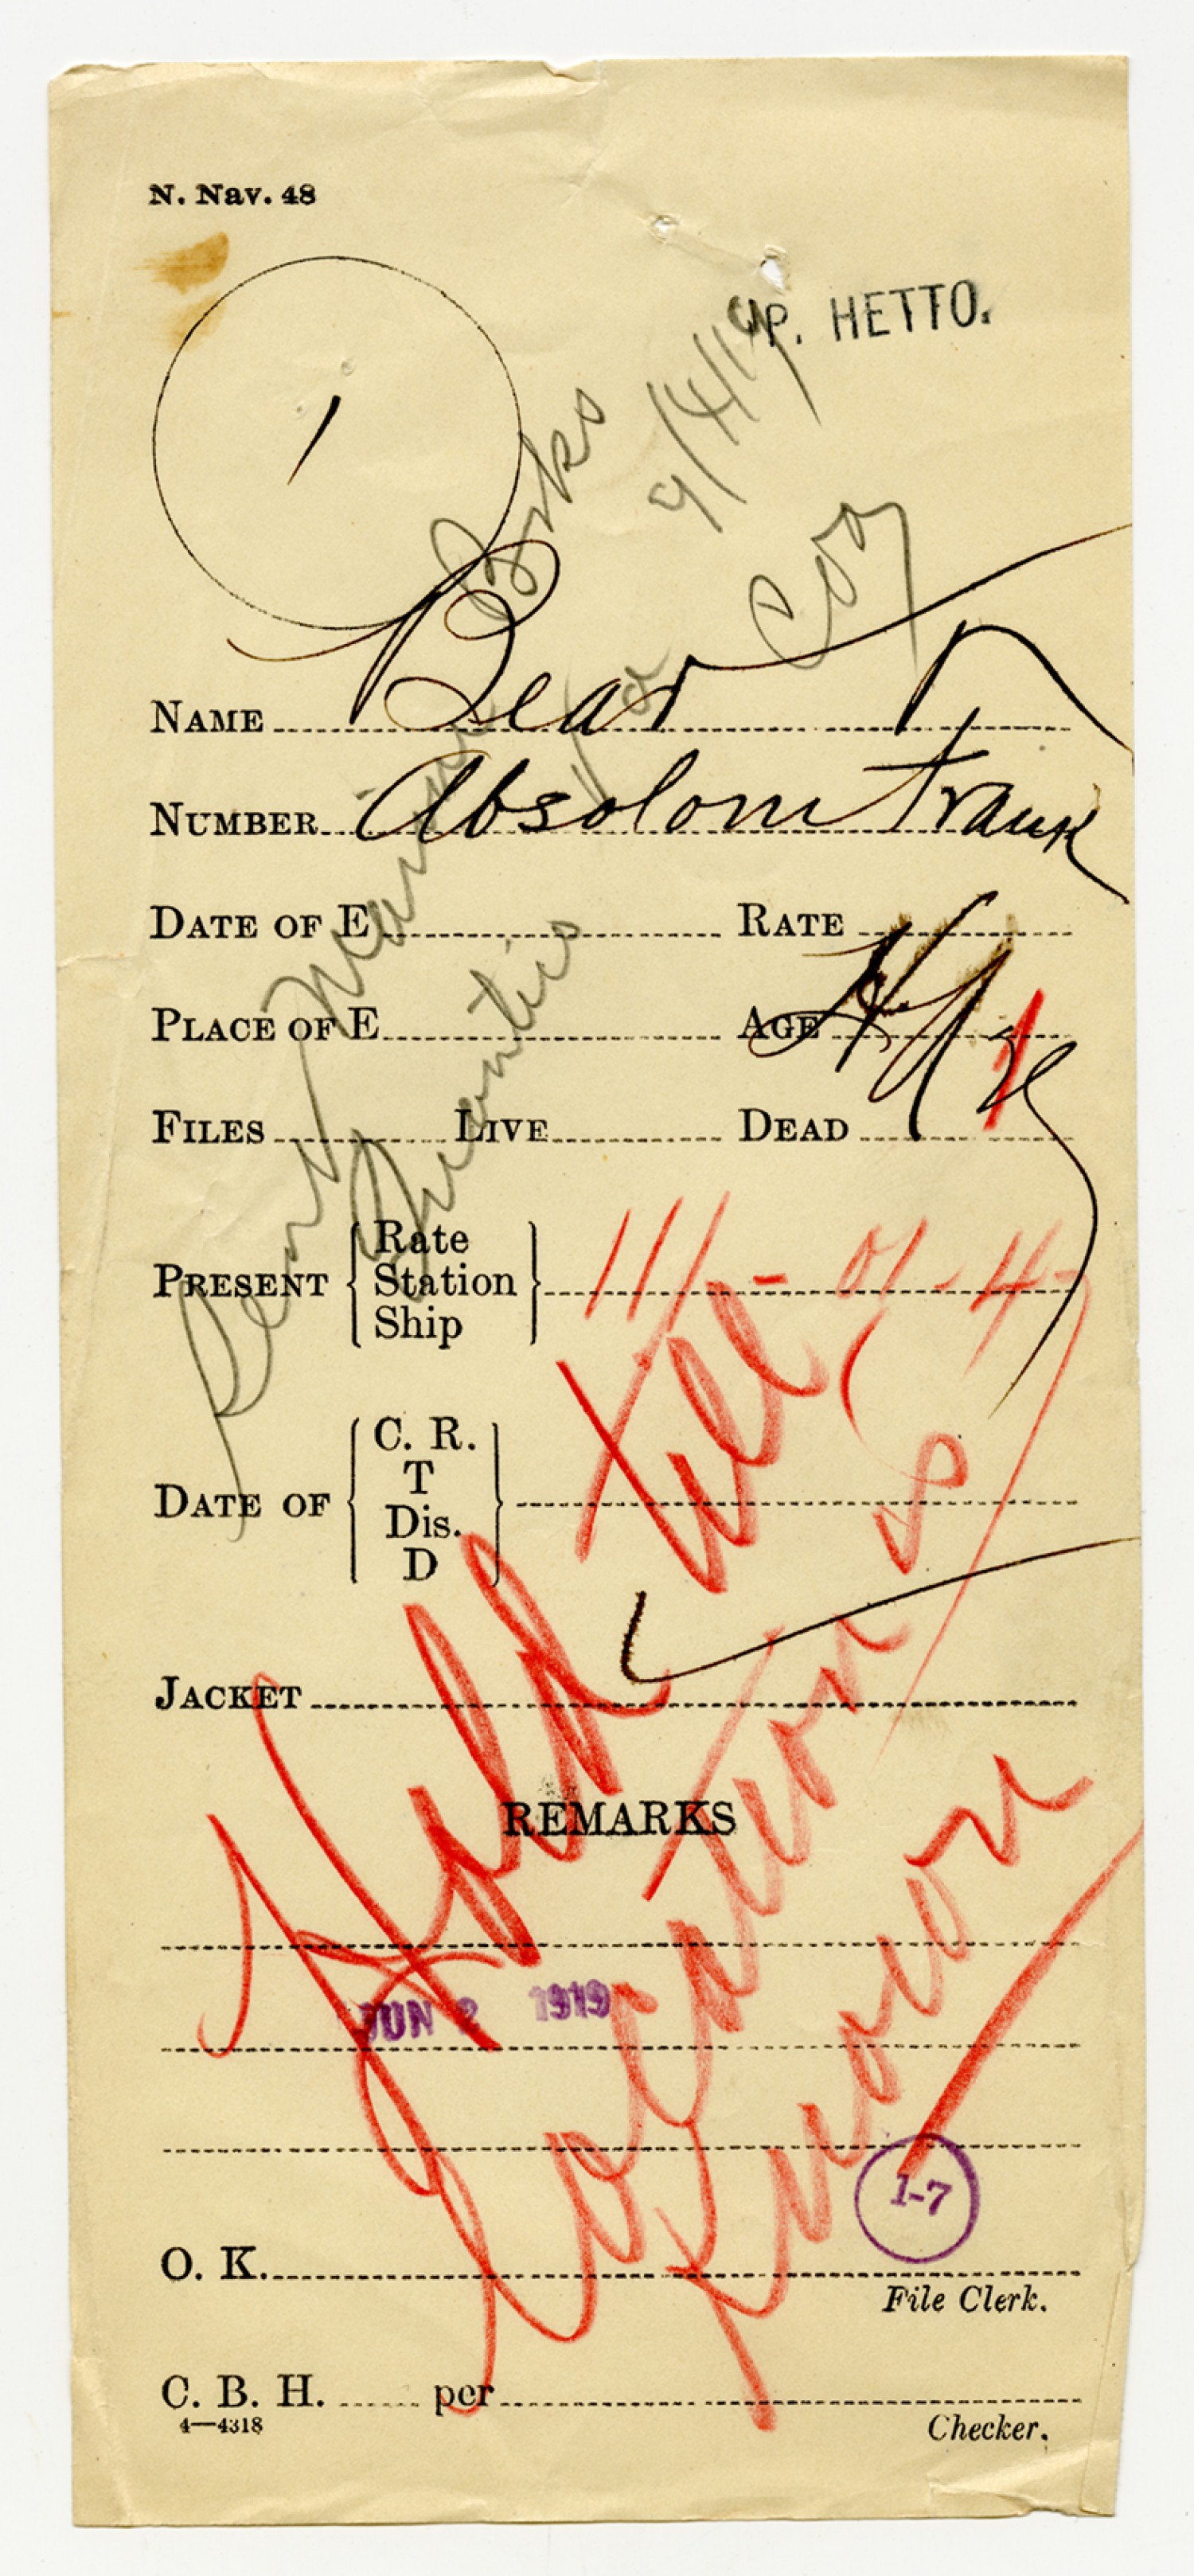 N. Nav. 48
P. HETTO.
1
9/4/19
Coy
Sent Marine Brks
Quantico Va
NAME Bear
NUMBER Absolom Frank
DATE OF E RATE
PLACE OF E AGE
FILES LIVE DEAD
PRESENT { Rate Station Ship } 111-01-4
DATE OF { C. R. T Dis. D }
JACKET
REMARKS
Hold till
location is
known
JUN 2 1919
1-7
O. K.
File Clerk.
C. B. H. per
4—4318
Checker.